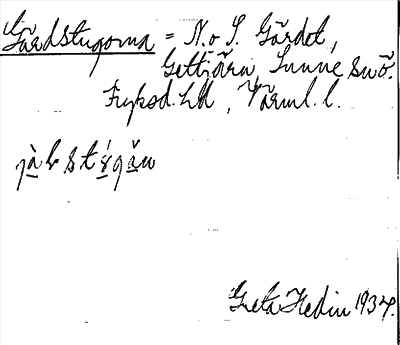 Gärdstugorna = N. o S. Gärdet,
Gettjärn, Sunne sn ö.
Fryksd. hd, Värml. l.
Greta Hedin 1934.